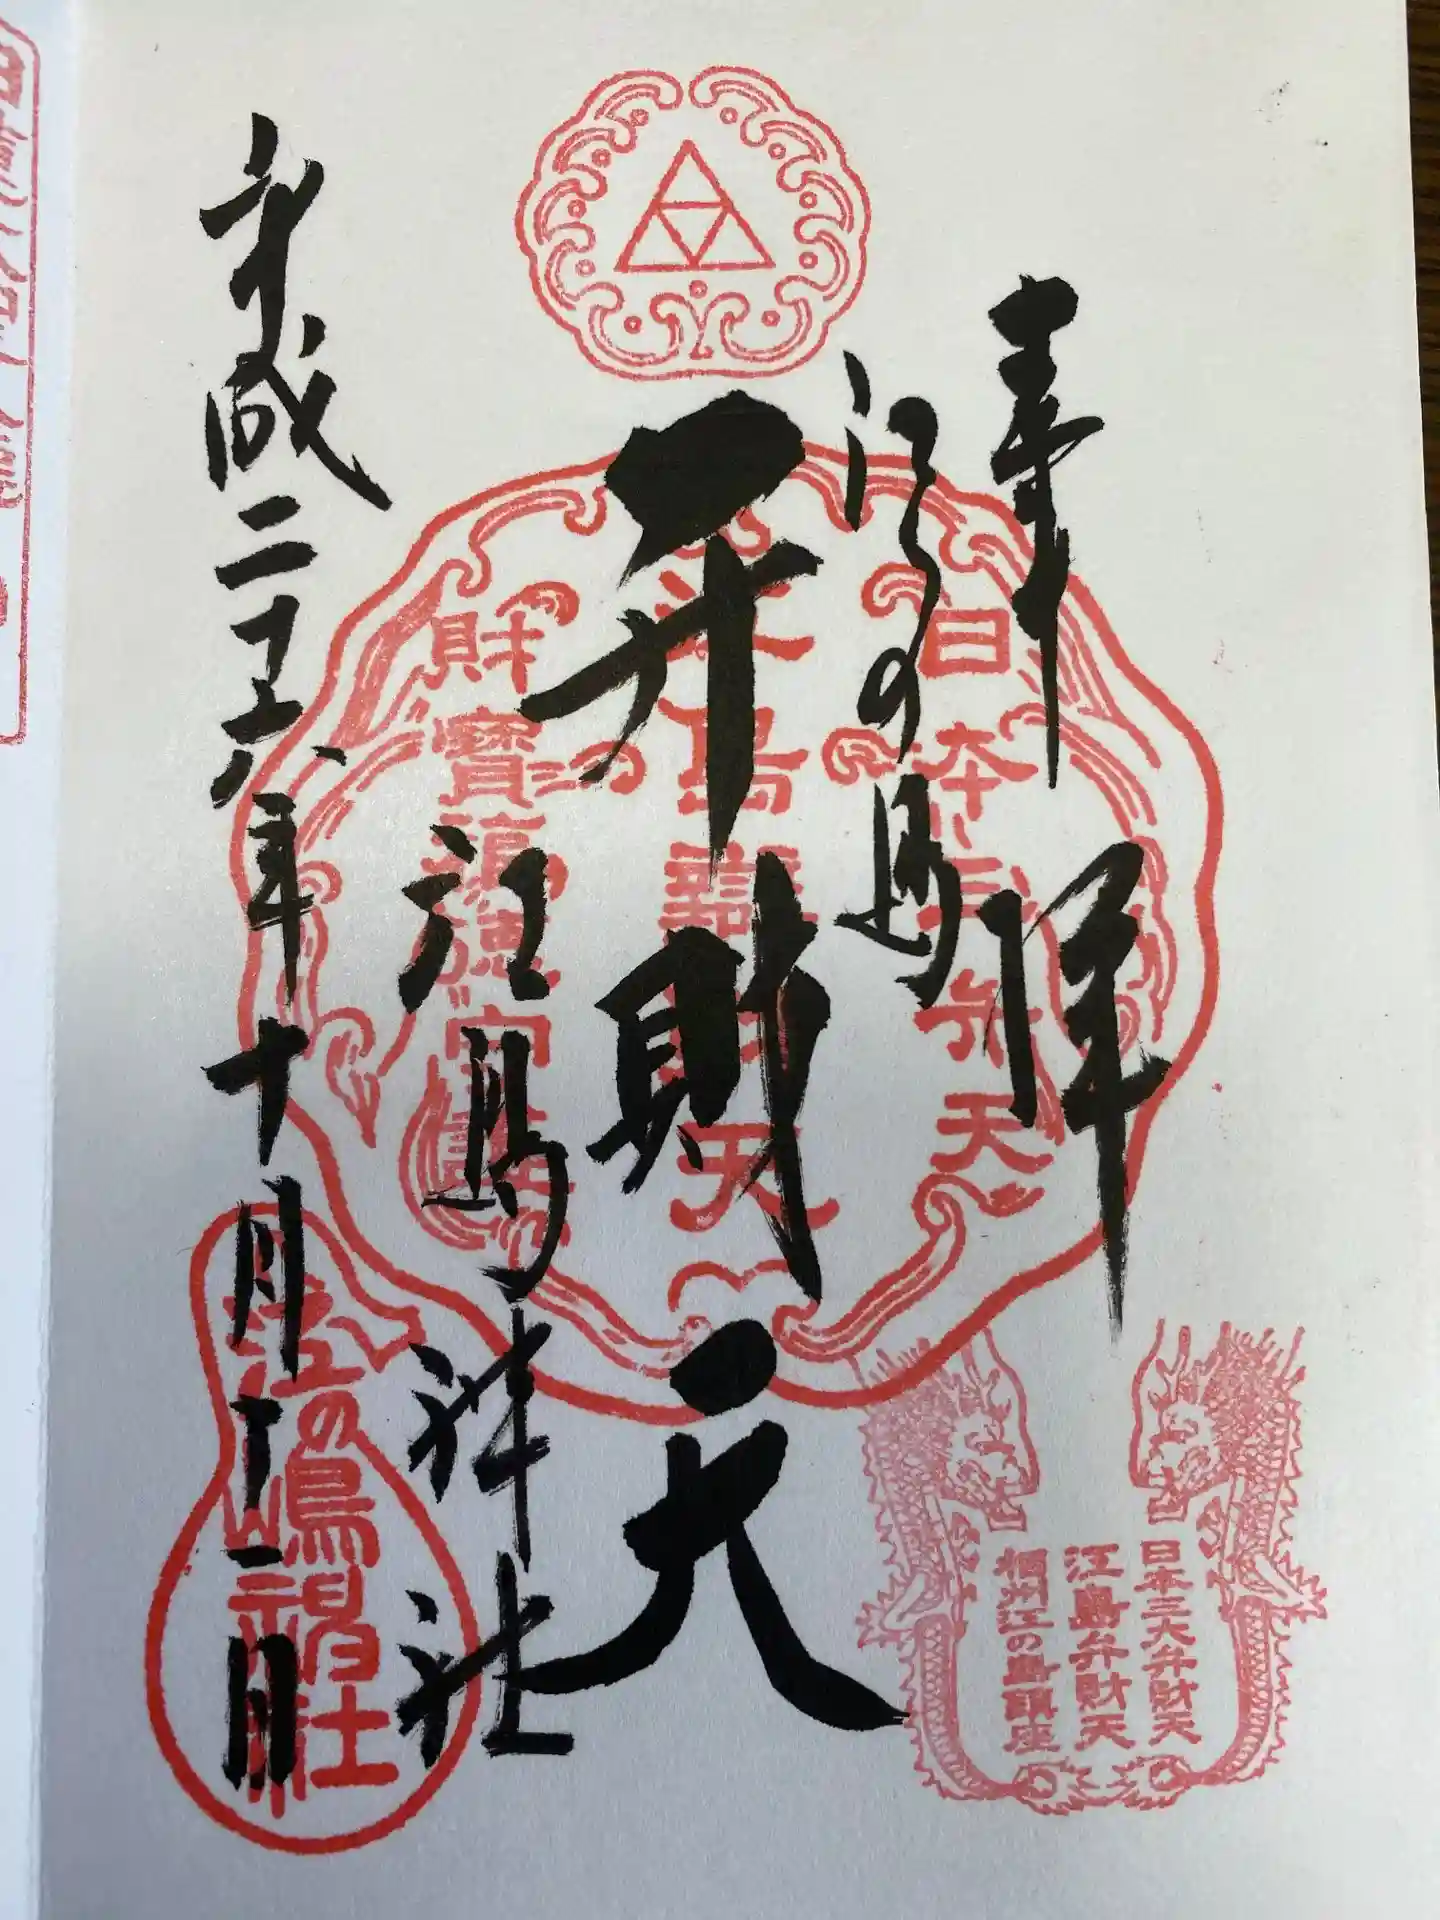 奉拝
江の島
弁財天
江島神社
平成二十八年十月十二日
日本三弁天
江島辯財天
財寶福徳守護
日本三大弁財天
江島弁財天
相州江の島鎮座
江の嶋神社